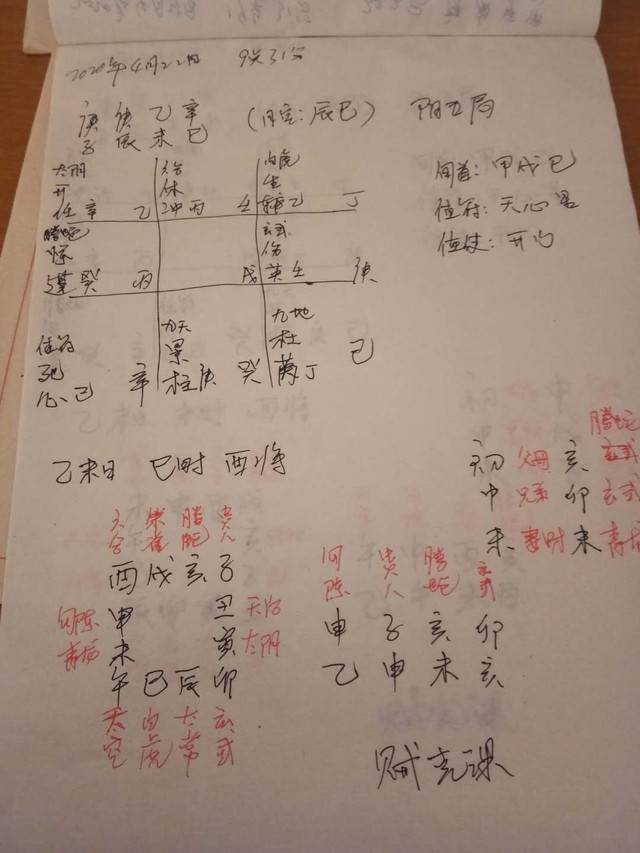 2020年4月22日 9点31分
庚 庚 乙 辛
子 辰 未 巳
(日空:辰巳) 阳五局
旬首:甲戌己
值符:天心星
值使:开门
太阴 六合 白虎
开 休 生
任辛 乙 冲丙 壬 辅乙 丁
腾蛇 玄武
惊 伤
蓬癸 丙 戊 英壬 庚
值符 九天 九地
死 景 杜
心己 辛 柱庚 癸 芮丁 己
乙未日 巳时 酉将
六合 朱雀 腾蛇 贵人
酉 戌 亥 子
勾陈 申 丑 天后
青龙 未 寅 太阴
午 巳 辰 卯
天空 白虎 太常 玄武
初 父母 亥 腾蛇
中 兄弟 卯 玄武
末 妻财 未 青龙
勾陈 贵人 腾蛇 玄武
申 子 亥 卯
乙 申 未 亥
贼克课